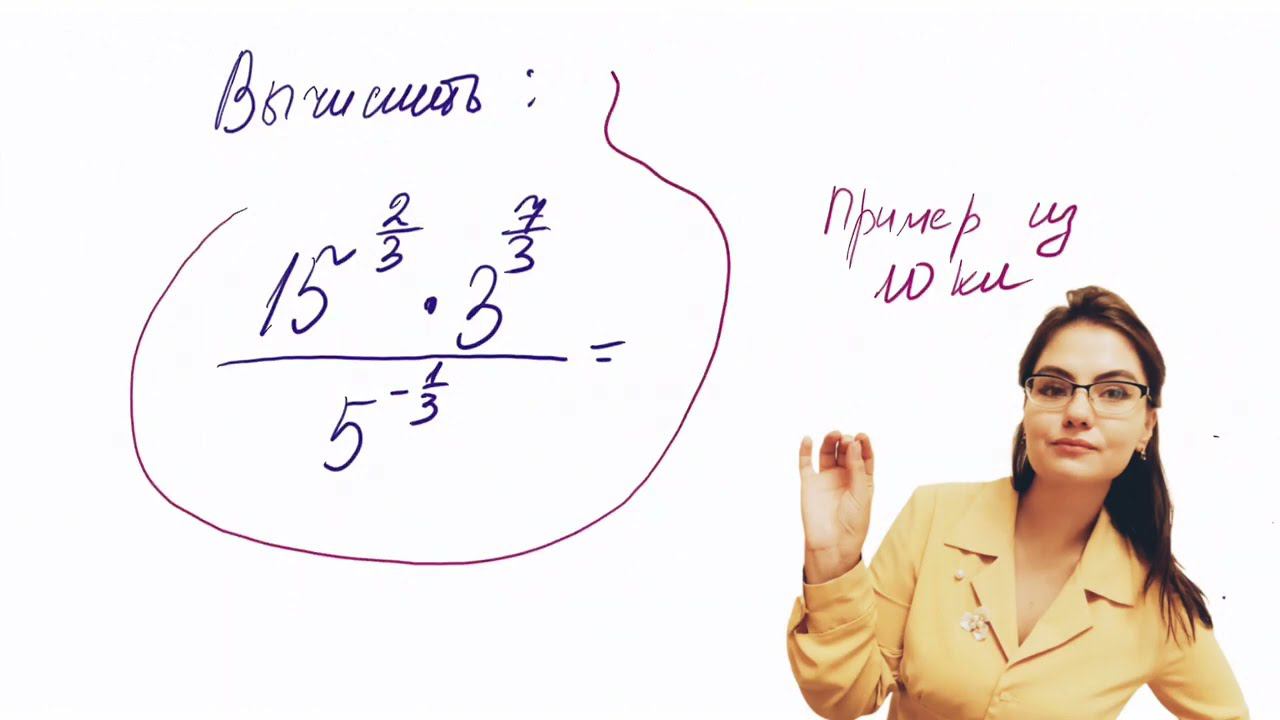 Вычислить :
15^(2/3) · 3^(7/3)
/ 5^(-1/3) =
Пример из
10 кл